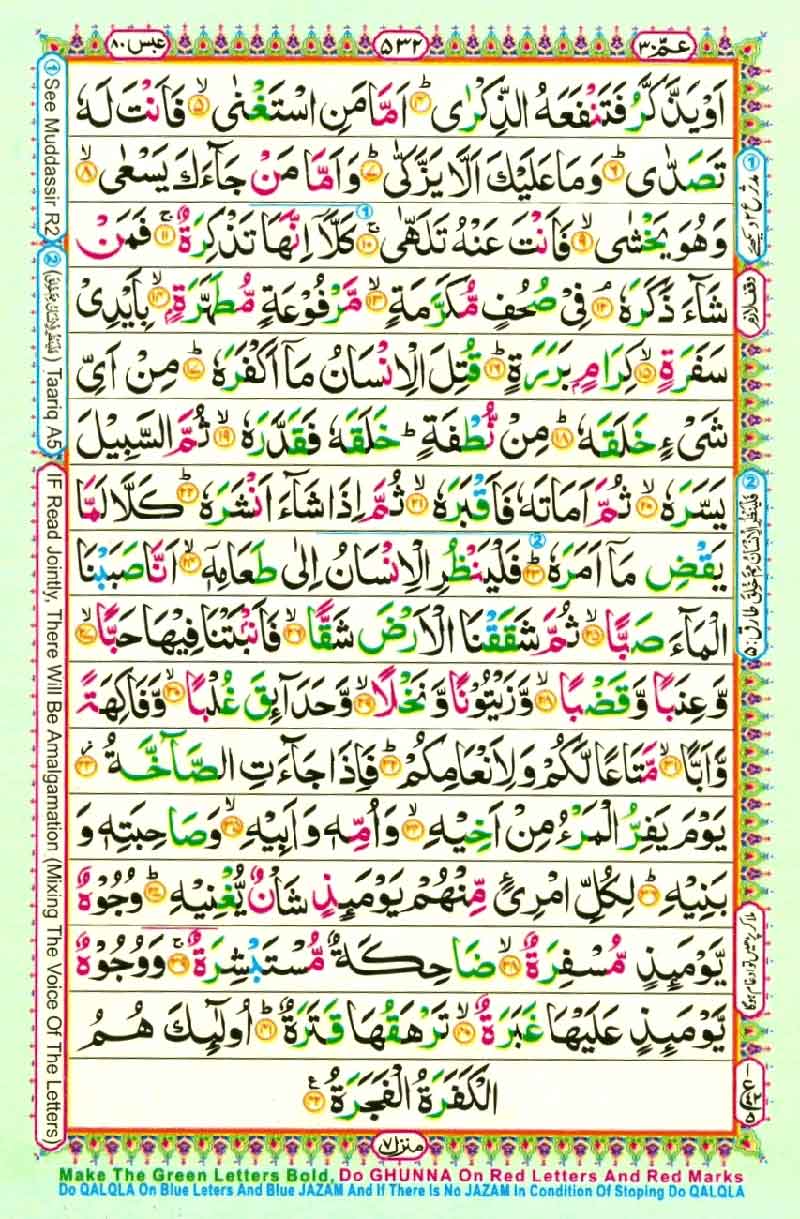 عَمَّ ٣٠
٥٣٢
عبس ٨٠
اَوْ يَذَّكَّرُ فَتَنْفَعَهُ الذِّكْرٰى ؕ‏ ﴿۴﴾ اَمَّا مَنِ اسْتَغْنٰىۙ‏ ﴿۵﴾ فَاَنْتَ لَهٗ
تَصَدّٰىؕ‏ ﴿۶﴾ وَمَا عَلَيْكَ اَلَّا يَزَّكّٰىؕ‏ ﴿۷﴾ وَاَمَّا مَنْ جَآءَكَ يَسْعٰىۙ‏ ﴿۸﴾
وَهُوَ يَخْشٰىۙ‏ ﴿۹﴾ فَاَنْتَ عَنْهُ تَلَهّٰى‌ۚ‏ ﴿۱۰﴾ كَلَّاۤ اِنَّهَا تَذْكِرَةٌ ۚ‏ ﴿۱۱﴾ فَمَنْ
شَآءَ ذَكَرَهٗ‌ۘ‏ ﴿۱۲﴾ فِىْ صُحُفٍ مُّكَرَّمَةٍۙ‏ ﴿۱۳﴾ مَّرْفُوْعَةٍ مُّطَهَّرَةٍۭۙ‏ ﴿۱۴﴾ بِاَيْدِىْ
سَفَرَةٍۙ‏ ﴿۱۵﴾ كِرَامٍۭ بَرَرَةٍؕ‏ ﴿۱۶﴾ قُتِلَ الْاِنْسَانُ مَاۤ اَكْفَرَهٗؕ‏ ﴿۱۷﴾ مِنْ اَىِّ
شَىْءٍ خَلَقَهٗؕ‏ ﴿۱۸﴾ مِنْ نُّطْفَةٍؕ خَلَقَهٗ فَقَدَّرَهٗۙ‏ ﴿۱۹﴾ ثُمَّ السَّبِيْلَ
يَسَّرَهٗۙ‏ ﴿۲۰﴾ ثُمَّ اَمَاتَهٗ فَاَقْبَرَهٗۙ‏ ﴿۲۱﴾ ثُمَّ اِذَا شَآءَ اَنْشَرَهٗؕ‏ ﴿۲۲﴾ كَلَّا لَمَّا
يَقْضِ مَاۤ اَمَرَهٗؕ‏ ﴿۲۳﴾ فَلْيَنْظُرِ الْاِنْسَانُ اِلٰى طَعَامِهٖۤۙ‏ ﴿۲۴﴾ اَنَّا صَبَبْنَا
الْمَآءَ صَبًّاۙ‏ ﴿۲۵﴾ ثُمَّ شَقَقْنَا الْاَرْضَ شَقًّاۙ‏ ﴿۲۶﴾ فَاَنْۢبَتْنَا فِيْهَا حَبًّاۙ‏ ﴿۲۷﴾
وَّعِنَبًا وَّقَضْبًاۙ‏ ﴿۲۸﴾ وَّزَيْتُوْنًا وَّنَخْلًاۙ‏ ﴿۲۹﴾ وَّحَدَآئِقَ غُلْبًاۙ‏ ﴿۳۰﴾ وَّفَاكِهَةً
وَّاَبًّاۙ‏ ﴿۳۱﴾ مَّتَاعًا لَّكُمْ وَلِاَنْعَامِكُمْؕ‏ ﴿۳۲﴾ فَاِذَا جَآءَتِ الصَّآخَّةُ‏ ﴿۳۳﴾
يَوْمَ يَفِرُّ الْمَرْءُ مِنْ اَخِيْهِۙ‏ ﴿۳۴﴾ وَاُمِّهٖ وَاَبِيْهِۙ‏ ﴿۳۵﴾ وَصَاحِبَتِهٖ وَ
بَنِيْهِؕ‏ ﴿۳۶﴾ لِكُلِّ امْرِىٴٍ مِّنْهُمْ يَوْمَئِذٍ شَاْنٌ يُّغْنِيْهِؕ‏ ﴿۳۷﴾ وُجُوْهٌ
يَّوْمَئِذٍ مُّسْفِرَةٌۙ‏ ﴿۳۸﴾ ضَاحِكَةٌ مُّسْتَبْشِرَةٌ ۚ‏ ﴿۳۹﴾ وَوُجُوْهٌ
يَّوْمَئِذٍ عَلَيْهَا غَبَرَةٌۙ‏ ﴿۴۰﴾ تَرْهَقُهَا قَتَرَةٌؕ‏ ﴿۴۱﴾ اُولٰٓئِكَ هُمُ
الْكَفَرَةُ الْفَجَرَةُ‏ ﴿۴۲﴾
منزل ٧
① See Muddassir R2
② Taariq A5
IF Read Jointly, There Will Be Amalgamation (Mixing The Voice Of The Letters)
وقف لازم
Make The Green Letters Bold, Do GHUNNA On Red Letters And Red Marks
Do QALQLA On Blue Leters And Blue JAZAM And If There Is No JAZAM In Condition Of Stoping Do QALQLA